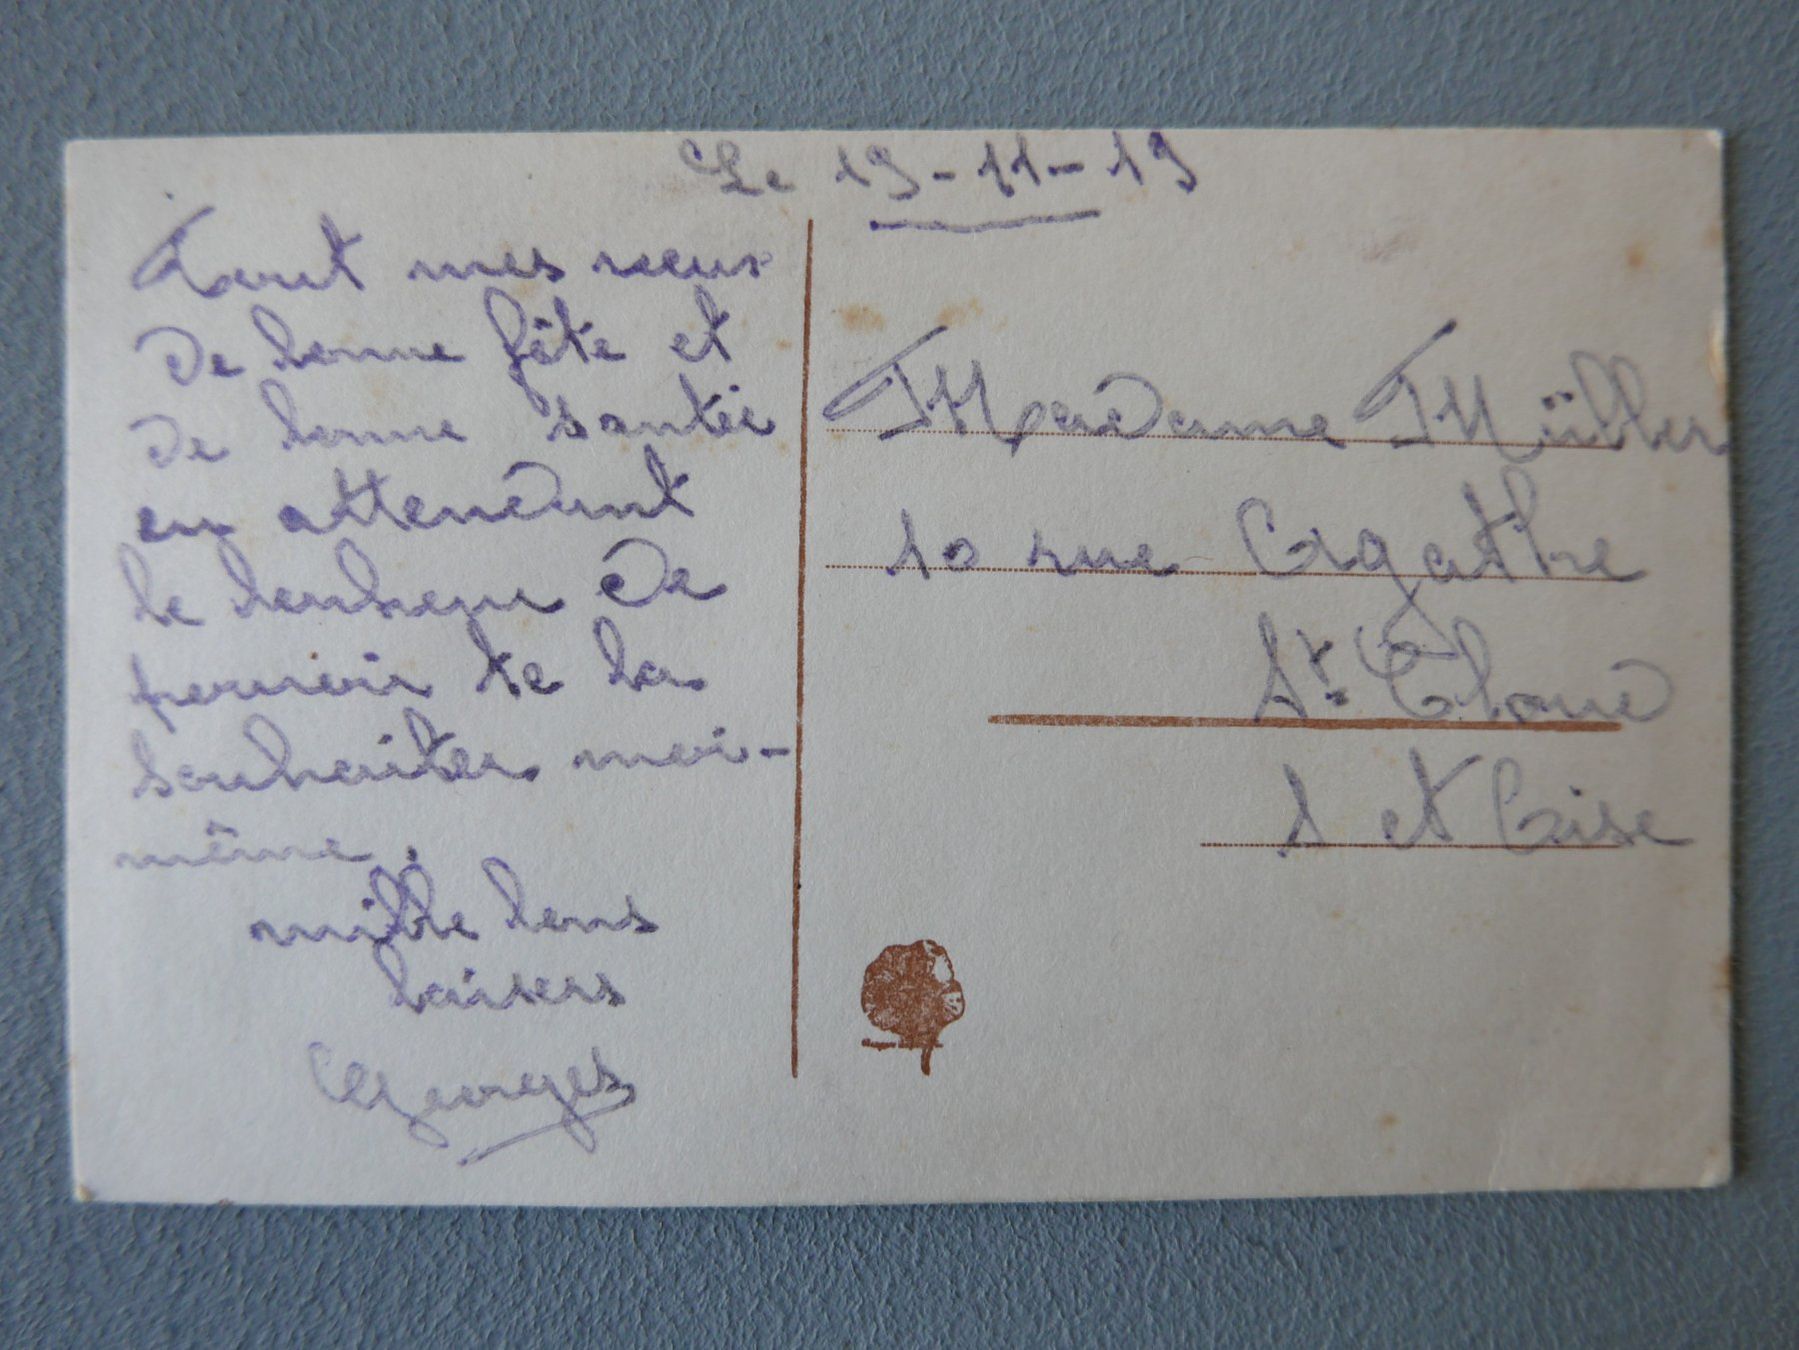 Le 19-11-19
Tout mes vœux
de bonne fête et
de bonne santée
en attendant
le bonheur de
pouvoir te la
souhaiter moi-
même.
mille bons
baisers
Georges
Madame Müller
10 rue Agathe
St. Cloud
S et Oise